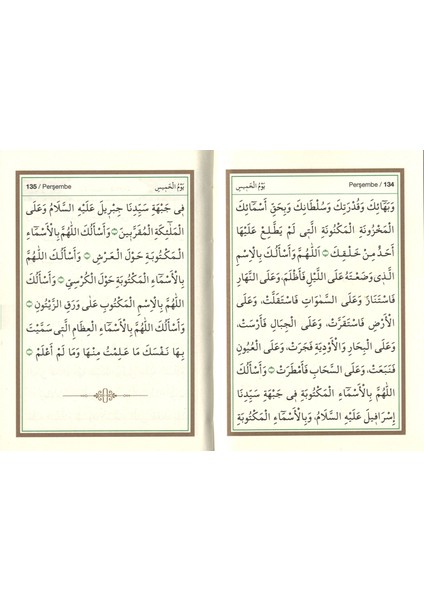 134 / Perşembe
يَوْمُ الْخَمِيسِ
وَبَهَائِكَ وَقُدْرَتِكَ وَسُلْطَانِكَ وَبِحَقِّ اَسْمَائِكَ
الْمَخْزُونَةِ الْمَكْنُونَةِ الَّتِى لَمْ يَطَّلِعْ عَلَيْهَا
اَحَدٌ مِنْ خَلْقِكَ اَللّٰهُمَّ وَاَسْأَلُكَ بِالْاِسْمِ
الَّذِى وَضَعْتَهُ عَلَى اللَّيْلِ فَأَظْلَمَ، وَعَلَى النَّهَارِ
فَاسْتَنَارَ، وَعَلَى السَّمٰوَاتِ فَاسْتَقَلَّتْ، وَعَلَى
الْاَرْضِ فَاسْتَقَرَّتْ، وَعَلَى الْجِبَالِ فَأَرْسَتْ،
وَعَلَى الْبِحَارِ وَالْاَوْدِيَةِ فَجَرَتْ، وَعَلَى الْعُيُونِ
فَنَبَعَتْ، وَعَلَى السَّحَابِ فَأَمْطَرَتْ وَاَسْأَلُكَ
اللّٰهُمَّ بِالْاَسْمَاءِ الْمَكْتُوبَةِ فِى جَبْهَةِ سَيِّدِنَا
اِسْرَافِيلَ عَلَيْهِ السَّلَامُ، وَبِالْاَسْمَاءِ الْمَكْتُوبَةِ
135 / Perşembe
يَوْمُ الْخَمِيسِ
فِى جَبْهَةِ سَيِّدِنَا جِبْرِيلَ عَلَيْهِ السَّلَامُ وَعَلَى
الْمَلٰئِكَةِ الْمُقَرَّبِينَ وَاَسْأَلُكَ اللّٰهُمَّ بِالْاَسْمَاءِ
الْمَكْتُوبَةِ حَوْلَ الْعَرْشِ وَاَسْأَلُكَ اللّٰهُمَّ
بِالْاَسْمَاءِ الْمَكْتُوبَةِ حَوْلَ الْكُرْسِىِّ وَاَسْأَلُكَ
اللّٰهُمَّ بِالْاِسْمِ الْمَكْتُوبِ عَلَى وَرَقِ الزَّيْتُونِ
وَاَسْأَلُكَ اللّٰهُمَّ بِالْاَسْمَاءِ الْعِظَامِ الَّتِى سَمَّيْتَ
بِهَا نَفْسَكَ مَا عَلِمْتُ مِنْهَا وَمَا لَمْ اَعْلَمْ